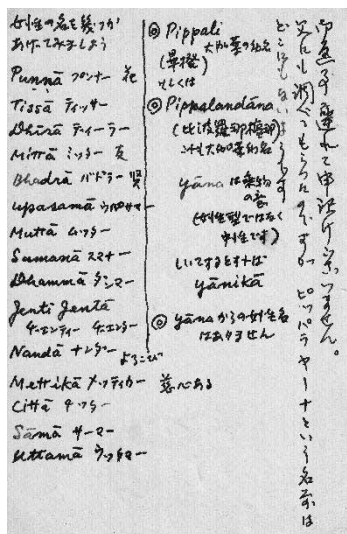 御返事遅れて申訳け ません。
父にも調べてもらったのですが ピッパラヤーナという名前は
どこにもないようです
◎ Pippali
大加葉の幼名
(畢撥)
もしくは
◎ Pippalandāna
(比波羅耶檀那)
これも大加葉幼名
yāna は乗物
の意
(女性型ではなく
中性です)
しいてするとすれば
yānikā
◎ yāna からの女性名
はありません
女性の名を幾つか
あげてみましょう
Punnā プンナー 花
Tissā ティッサー
Dhīrā ディーラー
Mittā ミッター 友
Bhadrā バドラー 賢
upasamā ウパサマー
Muttā ムッター
Sumanā スマナー
Dhammā ダンマー
Jenti Jentā
ヂェンティー ヂェンター
Nandā ナンダー よろこび
Mettikā メッティカー 慈心ある
Cittā チッター
Sāmā サーマー
Uttamā ウッタマー